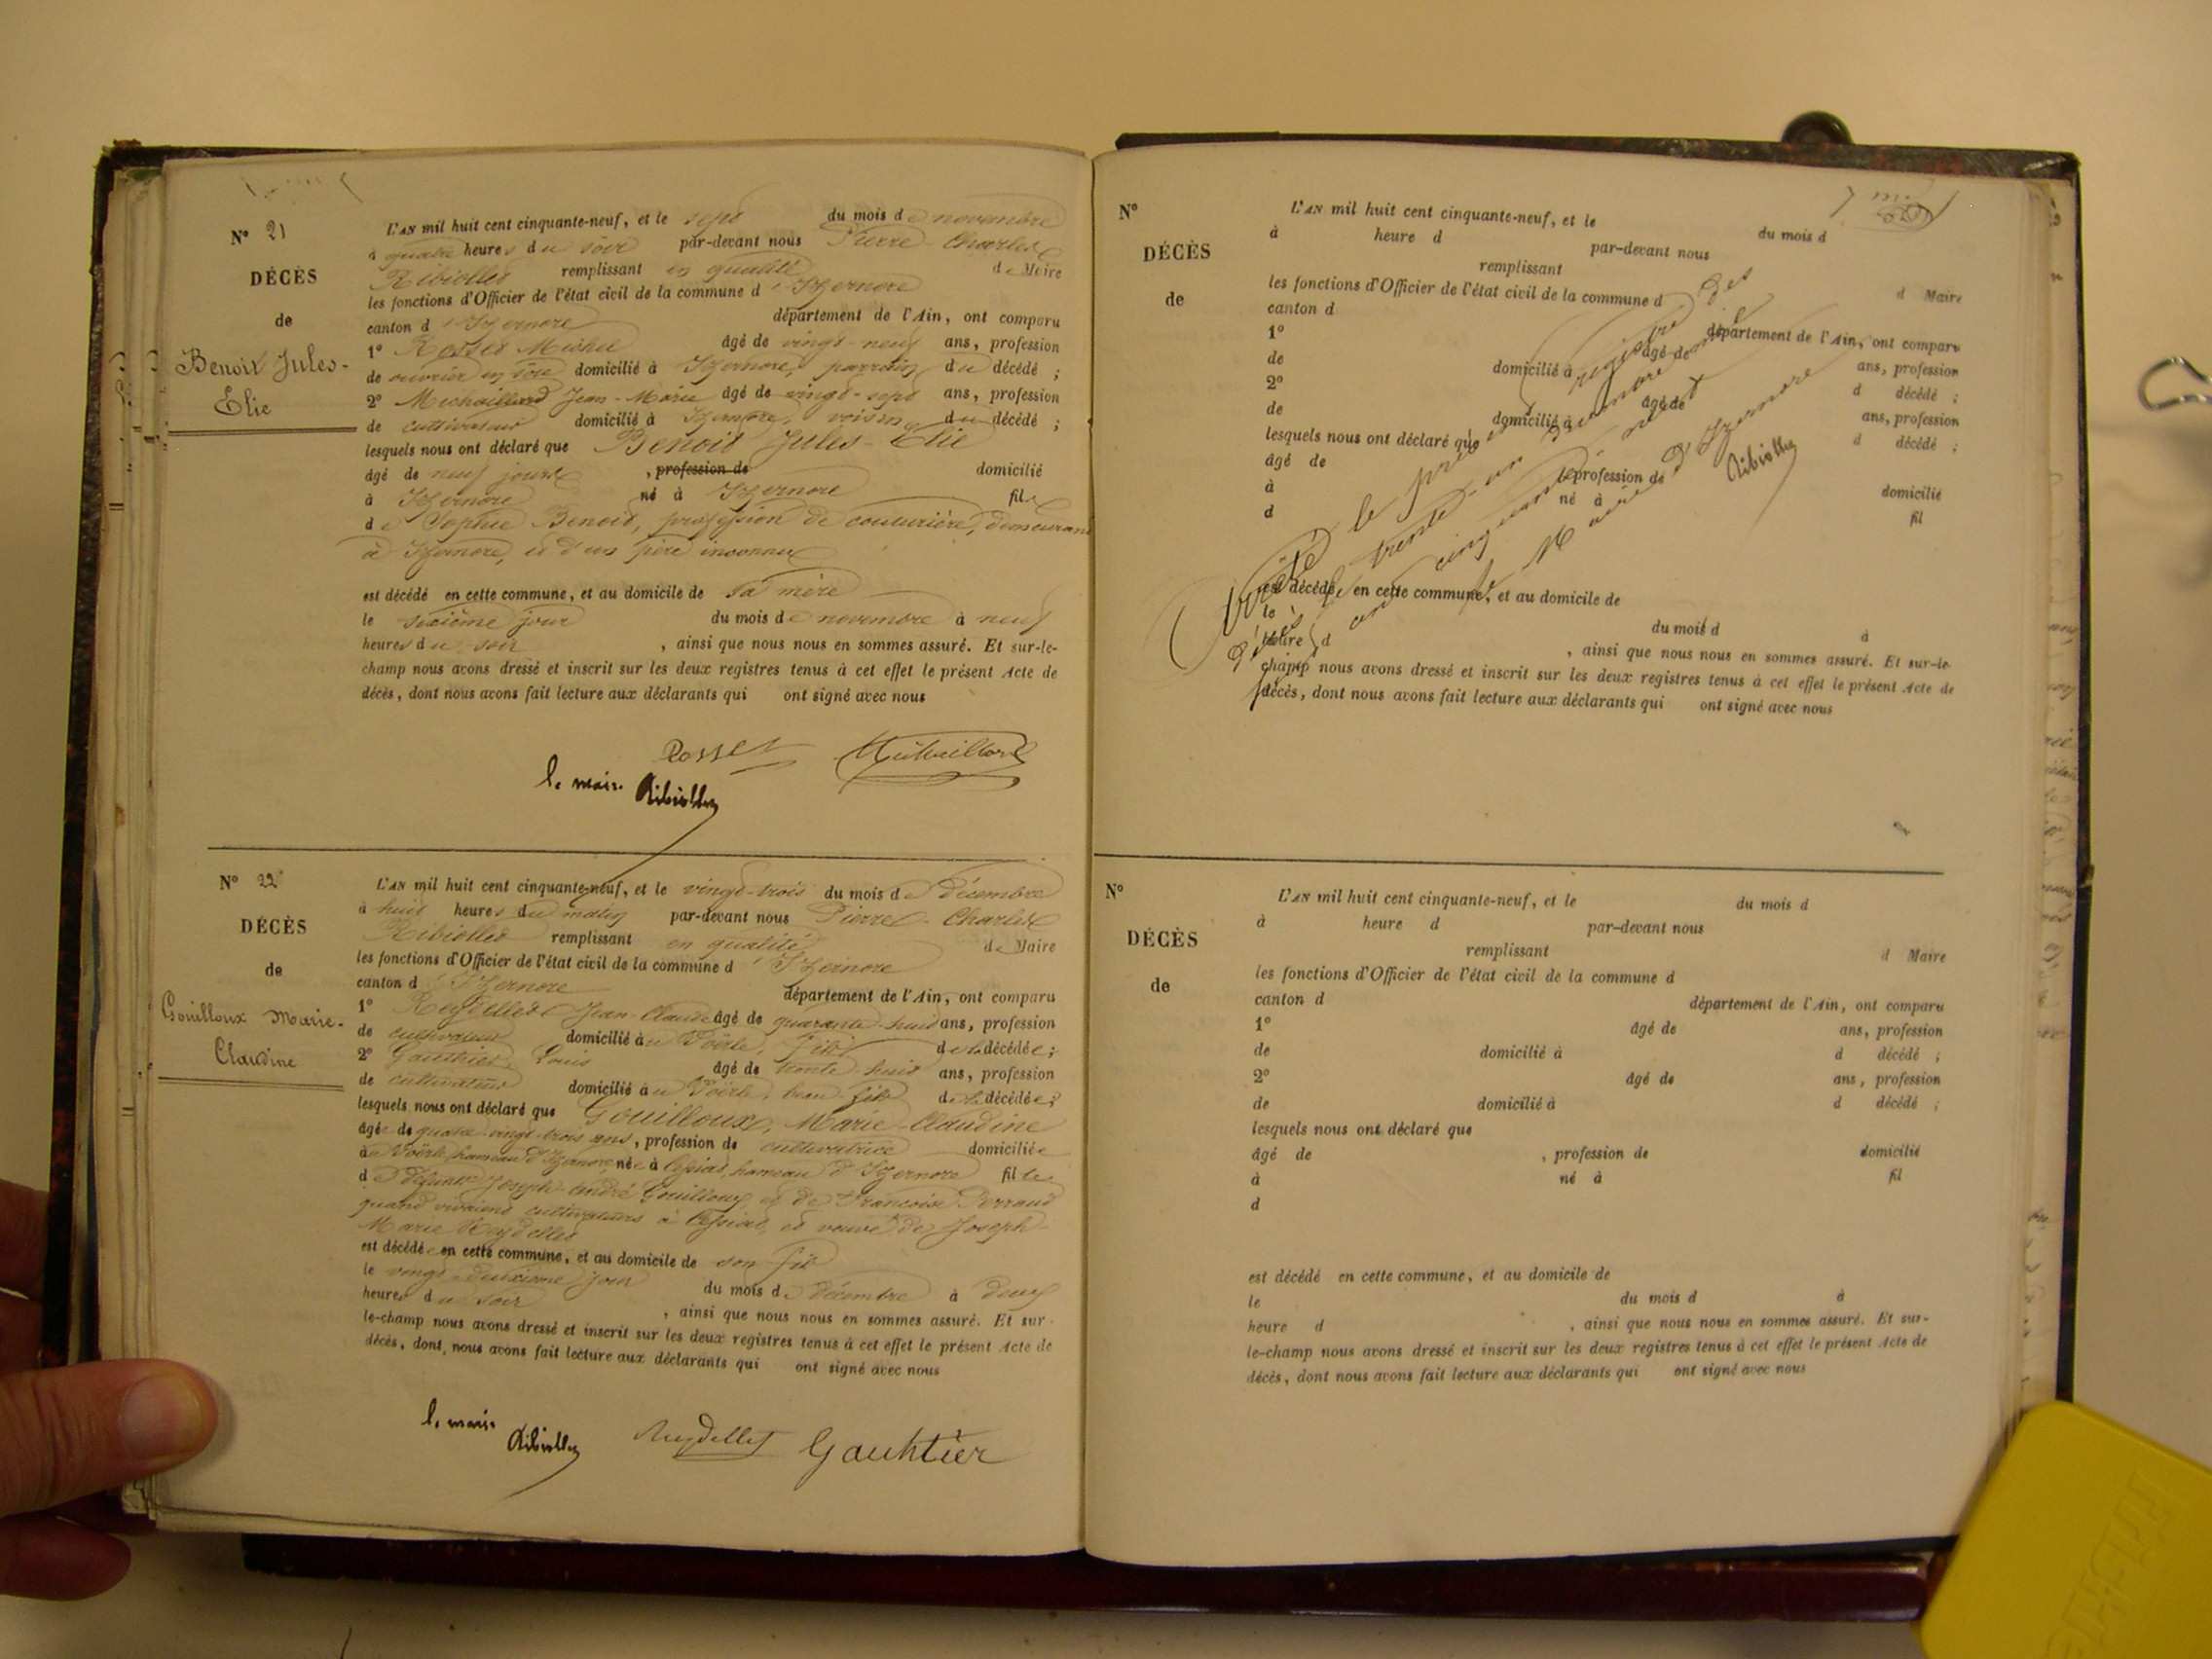 N° 21
DÉCÈS
de
Benoit Jules-
Élie
L'AN mil huit cent cinquante-neuf, et le sept du mois de novembre
à quatre heures du soir par-devant nous Pierre-Charles
Ribiollet remplissant en qualité de Maire
les fonctions d'Officier de l'état civil de la commune d'Izernore
canton d'Izernore département de l'Ain, ont comparu
1° Rosset Michel âgé de vingt-neuf ans, profession
de ouvrier en soie domicilié à Izernore, parrain du décédé ;
2° Michaillard Jean-Marie âgé de vingt-sept ans, profession
de cultivateur domicilié à Izernore, voisin du décédé ;
lesquels nous ont déclaré que Benoit Jules-Élie
âgé de neuf jours, profession de domicilié
à Izernore né à Izernore fils
de Sophie Benoit, profession de couturière, demeurant
à Izernore, et d'un père inconnu
est décédé en cette commune, et au domicile de sa mère
le sixième jour du mois de novembre à neuf
heures du soir, ainsi que nous nous en sommes assuré. Et sur-le-
champ nous avons dressé et inscrit sur les deux registres tenus à cet effet le présent Acte de
décès, dont nous avons fait lecture aux déclarants qui ont signé avec nous
Rosset Michaillard
le maire Ribiollet
N° 22
DÉCÈS
de
Gouilloux Marie-
Claudine
L'AN mil huit cent cinquante-neuf, et le vingt-trois du mois de décembre
à huit heures du matin par-devant nous Pierre-Charles
Ribiollet remplissant en qualité de Maire
les fonctions d'Officier de l'état civil de la commune d'Izernore
canton d'Izernore département de l'Ain, ont comparu
1° Reydellet Jean-Claude âgé de quarante-huit ans, profession
de cultivateur domicilié à Voërle, fils de la décédée ;
2° Gauthier Louis âgé de trente-huit ans, profession
de cultivateur domicilié à Voërle, beau fils de la décédée ;
lesquels nous ont déclaré que Gouilloux, Marie-Claudine
âgée de quatre-vingt-trois ans, profession de cultivatrice domiciliée
à Voërle, hameau d'Izernore née à Cessiat, hameau d'Izernore fille
de défunts Joseph-André Gouilloux et de Francoise Perraud
quand vivaient cultivateurs à Cessiat, et veuve de Joseph-
Marie Reydellet
est décédée en cette commune, et au domicile de son fils
le vingt-deuxième jour du mois de décembre à deux
heures du soir, ainsi que nous nous en sommes assuré. Et sur-
le-champ nous avons dressé et inscrit sur les deux registres tenus à cet effet le présent Acte de
décès, dont nous avons fait lecture aux déclarants qui ont signé avec nous
le maire Ribiollet Reydellet Gauhtier
N°
DÉCÈS
de
L'AN mil huit cent cinquante-neuf, et le du mois d
à heure d par-devant nous
remplissant d Maire
les fonctions d'Officier de l'état civil de la commune d
canton d département de l'Ain, ont comparu
1° âgé de ans, profession
de domicilié à d décédé ;
2° âgé de ans, profession
de domicilié à d décédé ;
lesquels nous ont déclaré que
âgé de , profession de domicilié
à né à fil
d
est décédé en cette commune, et au domicile de
le du mois d à
heure d , ainsi que nous nous en sommes assuré. Et sur-le-
champ nous avons dressé et inscrit sur les deux registres tenus à cet effet le présent Acte de
décès, dont nous avons fait lecture aux déclarants qui ont signé avec nous
le présent registre des
décès trente-un
cinquante neuf
le Maire d'Izernore
Ribiollet
N°
DÉCÈS
de
L'AN mil huit cent cinquante-neuf, et le du mois d
à heure d par-devant nous
remplissant d Maire
les fonctions d'Officier de l'état civil de la commune d
canton d département de l'Ain, ont comparu
1° âgé de ans, profession
de domicilié à d décédé ;
2° âgé de ans, profession
de domicilié à d décédé ;
lesquels nous ont déclaré que
âgé de , profession de domicilié
à né à fil
d
est décédé en cette commune, et au domicile de
le du mois d à
heure d , ainsi que nous nous en sommes assuré. Et sur-
le-champ nous avons dressé et inscrit sur les deux registres tenus à cet effet le présent Acte de
décès, dont nous avons fait lecture aux déclarants qui ont signé avec nous